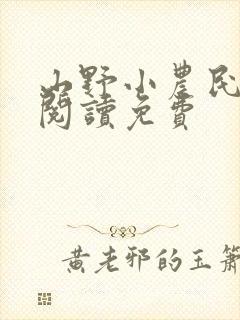 山野小農民
閱讀免費
黃老邪的玉簫